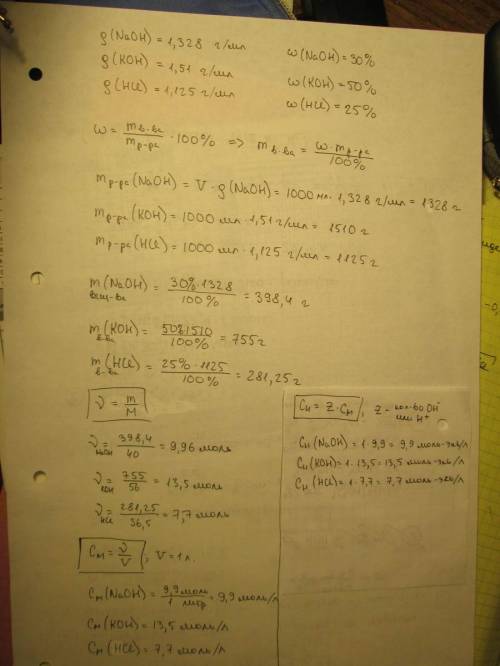 g(NaOH) = 1,328 г/мл
g(KOH) = 1,51 г/мл
g(HCl) = 1,125 г/мл
ω(NaOH) = 30%
ω(KOH) = 50%
ω(HCl) = 25%
ω = mв-ва / mр-ра · 100% => mв-ва = ω · mр-ра / 100%
mр-ра(NaOH) = V · g(NaOH) = 1000 мл · 1,328 г/мл = 1328 г
mр-ра(KOH) = 1000 мл · 1,51 г/мл = 1510 г
mр-ра(HCl) = 1000 мл · 1,125 г/мл = 1125 г
m(NaOH) вещ-ва = 30% · 1328 / 100% = 398,4 г
m(KOH) в-ва = 50% 1510 / 100% = 755 г
m(HCl) в-ва = 25% · 1125 / 100% = 281,25 г
ν = m / M
ν NaOH = 398,4 / 40 = 9,96 моль
ν KOH = 755 / 56 = 13,5 моль
ν HCl = 281,25 / 36,5 = 7,7 моль
Cм = ν / V , V = 1 л.
Cм(NaOH) = 9,9 моль / 1 литр = 9,9 моль/л
Cм(KOH) = 13,5 моль/л
Cм(HCl) = 7,7 моль/л
Cн = Z · Cм , Z - кол-во OH⁻ или H⁺
Cн(NaOH) = 1 · 9,9 = 9,9 моль-экв/л
Cн(KOH) = 1 · 13,5 = 13,5 моль-экв/л
Cн(HCl) = 1 · 7,7 = 7,7 моль-экв/л